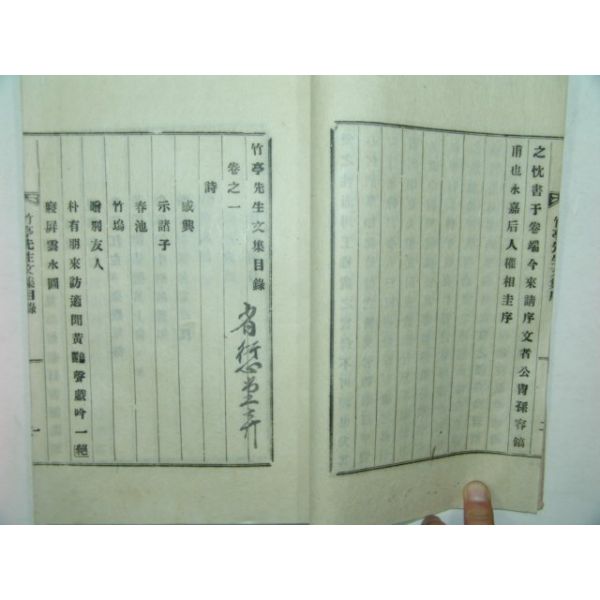 之忱書于卷端今來請序文者公胄孫容鎬
甫也永嘉后人權相圭序
竹亭先生文集序
竹亭先生文集目錄
卷之一
詩
感興
示諸子
春池
竹塢
贈別友人
朴有朋來訪適聞黃鸝聲戱吟一絕
寢屛雲水圖
竹亭先生文集目錄
一